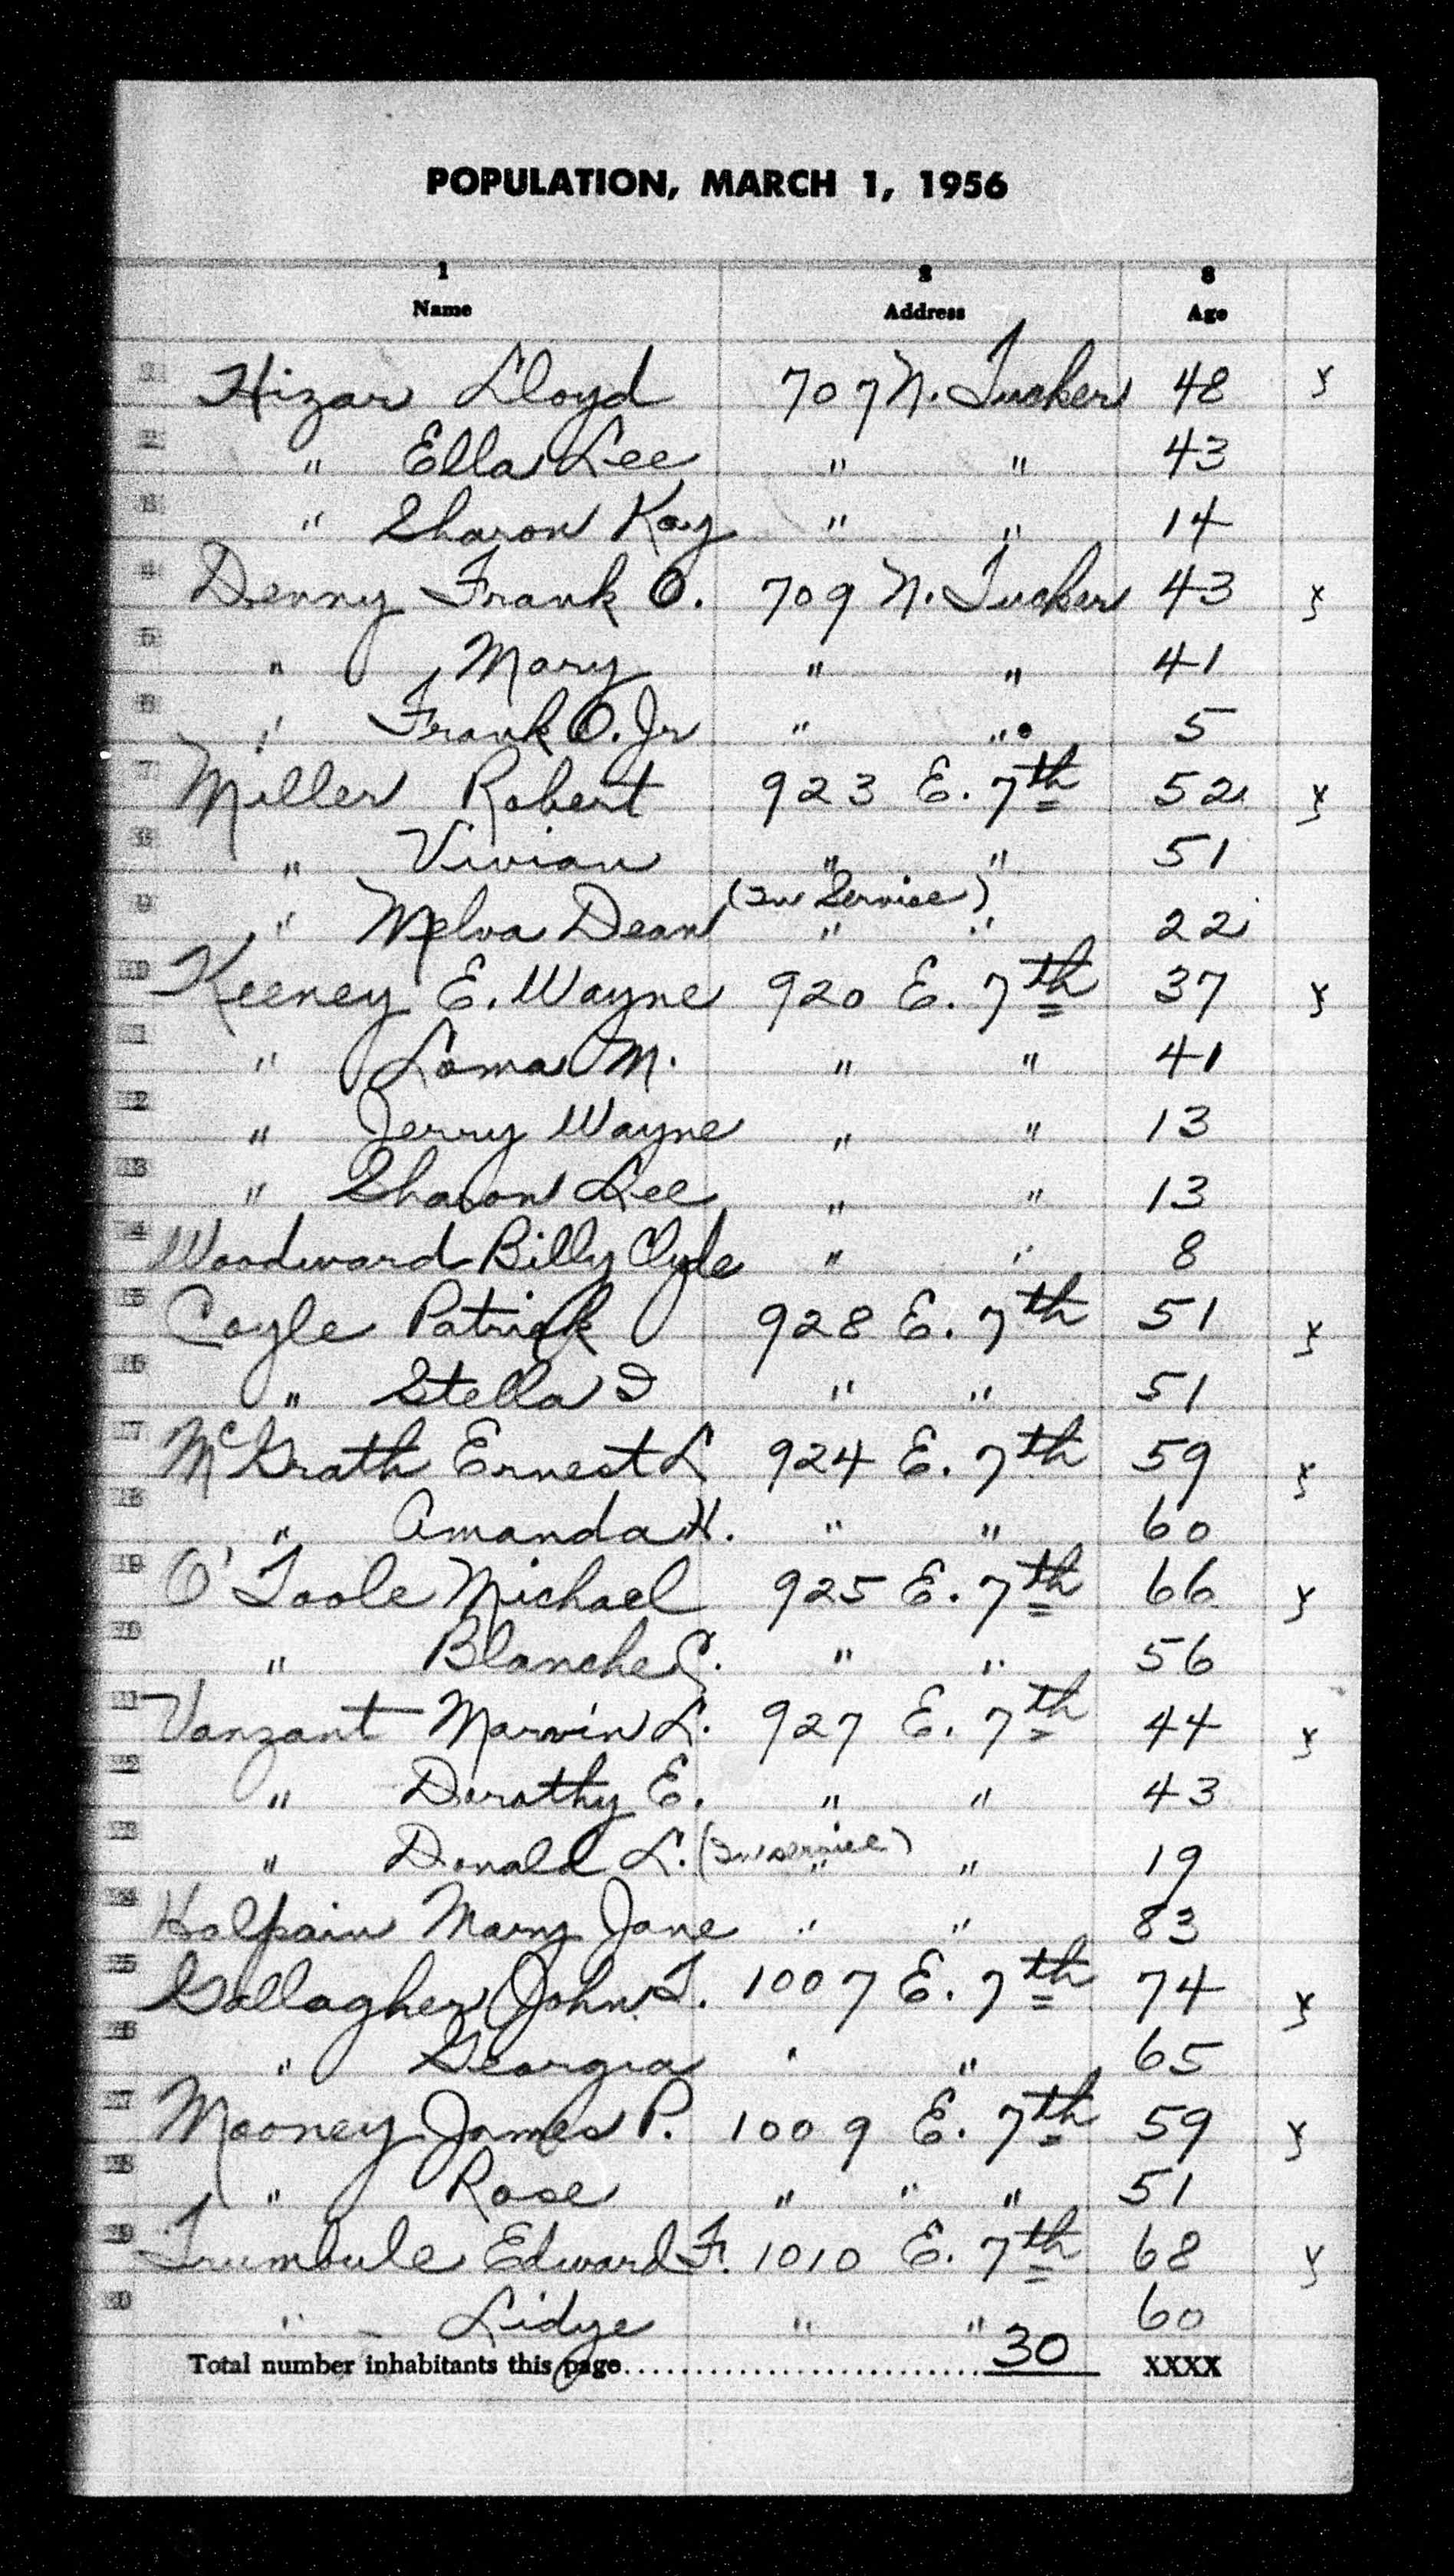 POPULATION, MARCH 1, 1956
1 2 3
Name Address Age
1 Hizar Lloyd 707 N. Tucker 48
2 " Ella Lee " " 43
3 " Sharon Kay " " 14
4 Denny Frank O. 709 N. Tucker 43
5 " Mary " " 41
6 " Frank O. Jr " " 5
7 Miller Robert 923 E. 7th 52
8 " Vivian " " 51
(In Service)
9 " Melva Dean " " 22
10 Keeney E. Wayne 920 E. 7th 37
11 " Loma M. " " 41
12 " Jerry Wayne " " 13
13 " Sharon Lee " " 13
14 Woodward Billy Clyde " " 8
15 Coyle Patrick 928 E. 7th 51
16 " Stella I " " 51
17 McGrath Ernest L 924 E. 7th 59
18 " Amanda H. " " 60
19 O'Toole Michael 925 E. 7th 66
20 " Blanche C. " " 56
21 Vanzant Marvin L. 927 E. 7th 44
22 " Dorothy E. " " 43
23 " Donald L. (In service) " " 19
24 Halpain Mary Jane " " 83
25 Gallagher John T. 1007 E. 7th 74
26 " Georgia " " 65
27 Mooney James P. 1009 E. 7th 59
28 " Rose " " " 51
29 Trumbule Edward F. 1010 E. 7th 68
30 " Lidye " " 60
Total number inhabitants this page 30 XXXX